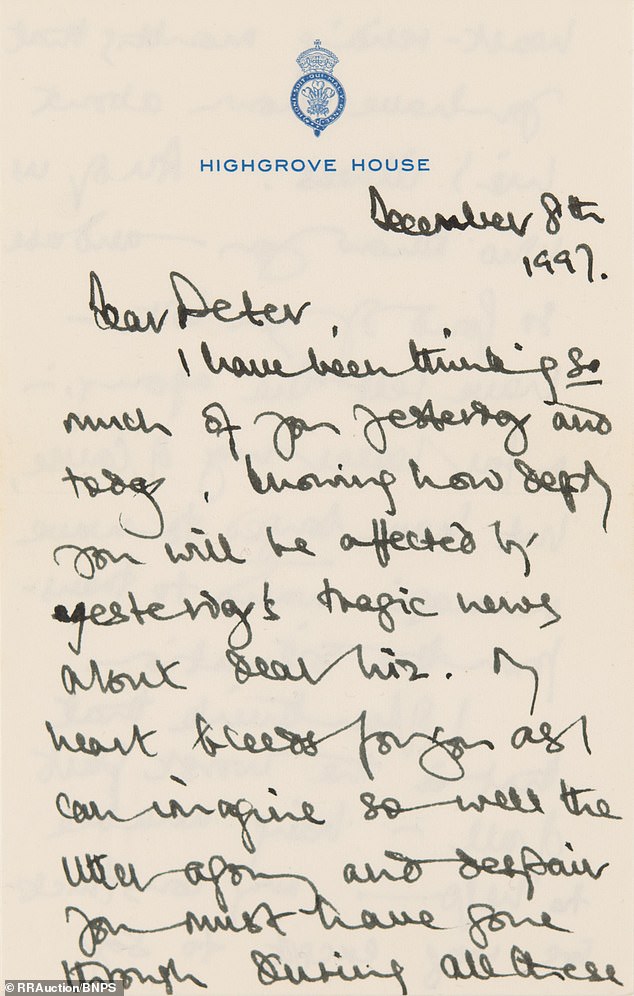 HIGHGROVE HOUSE
December 8th
1997.
Dear Peter,
I have been thinking so
much of you yesterday and
today, knowing how deeply
you will be affected by
yesterday's tragic news
about dear Liz. My
heart bleeds for you as I
can imagine so well the
utter agony and despair
you must have gone
through during all these
© RRAuction/BNPS